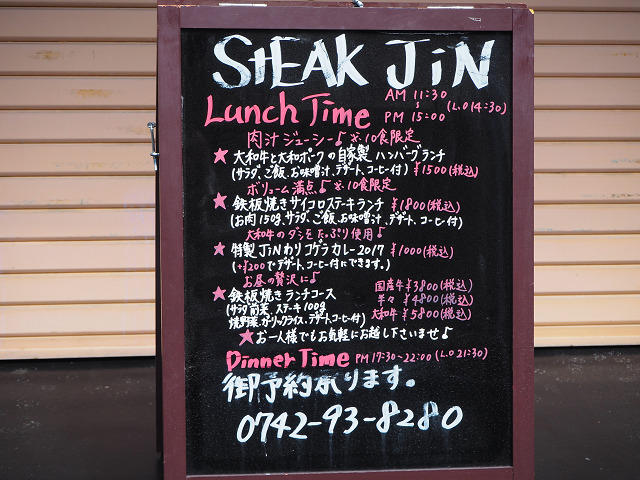 STEAK JiN
Lunch Time AM 11:30 ~ PM 15:00 (L.O 14:30)
肉汁ジューシー♪ ※10食限定
★ 大和牛と大和ポークの自家製 ハンバーグランチ
(サラダ、ご飯、お味噌汁、デザート、コーヒー付) ¥1500(税込)
ボリューム満点♪ ※10食限定
★ 鉄板焼きサイコロステーキランチ ¥1800(税込)
(お肉150g、サラダ、ご飯、お味噌汁、デザート、コーヒー付)
大和牛のダシをたっぷり使用♪
★ 特製JiNわりコゲラカレー2017 ¥1000(税込)
(+¥200でデザート、コーヒー付にできます。)
お昼の贅沢に♪
★ 鉄板焼きランチコース
(サラダ 前菜、ステーキ100g
焼野菜、ガーリックライス、デザート、コーヒー付)
国産牛 ¥3800(税込)
¥4800(税込)
大和牛 ¥5800(税込)
★お一人様でもお気軽にお越し下さいませ♪
Dinner Time PM 17:30~22:00 (L.O 21:30)
御予約承ります。
0742-93-8280